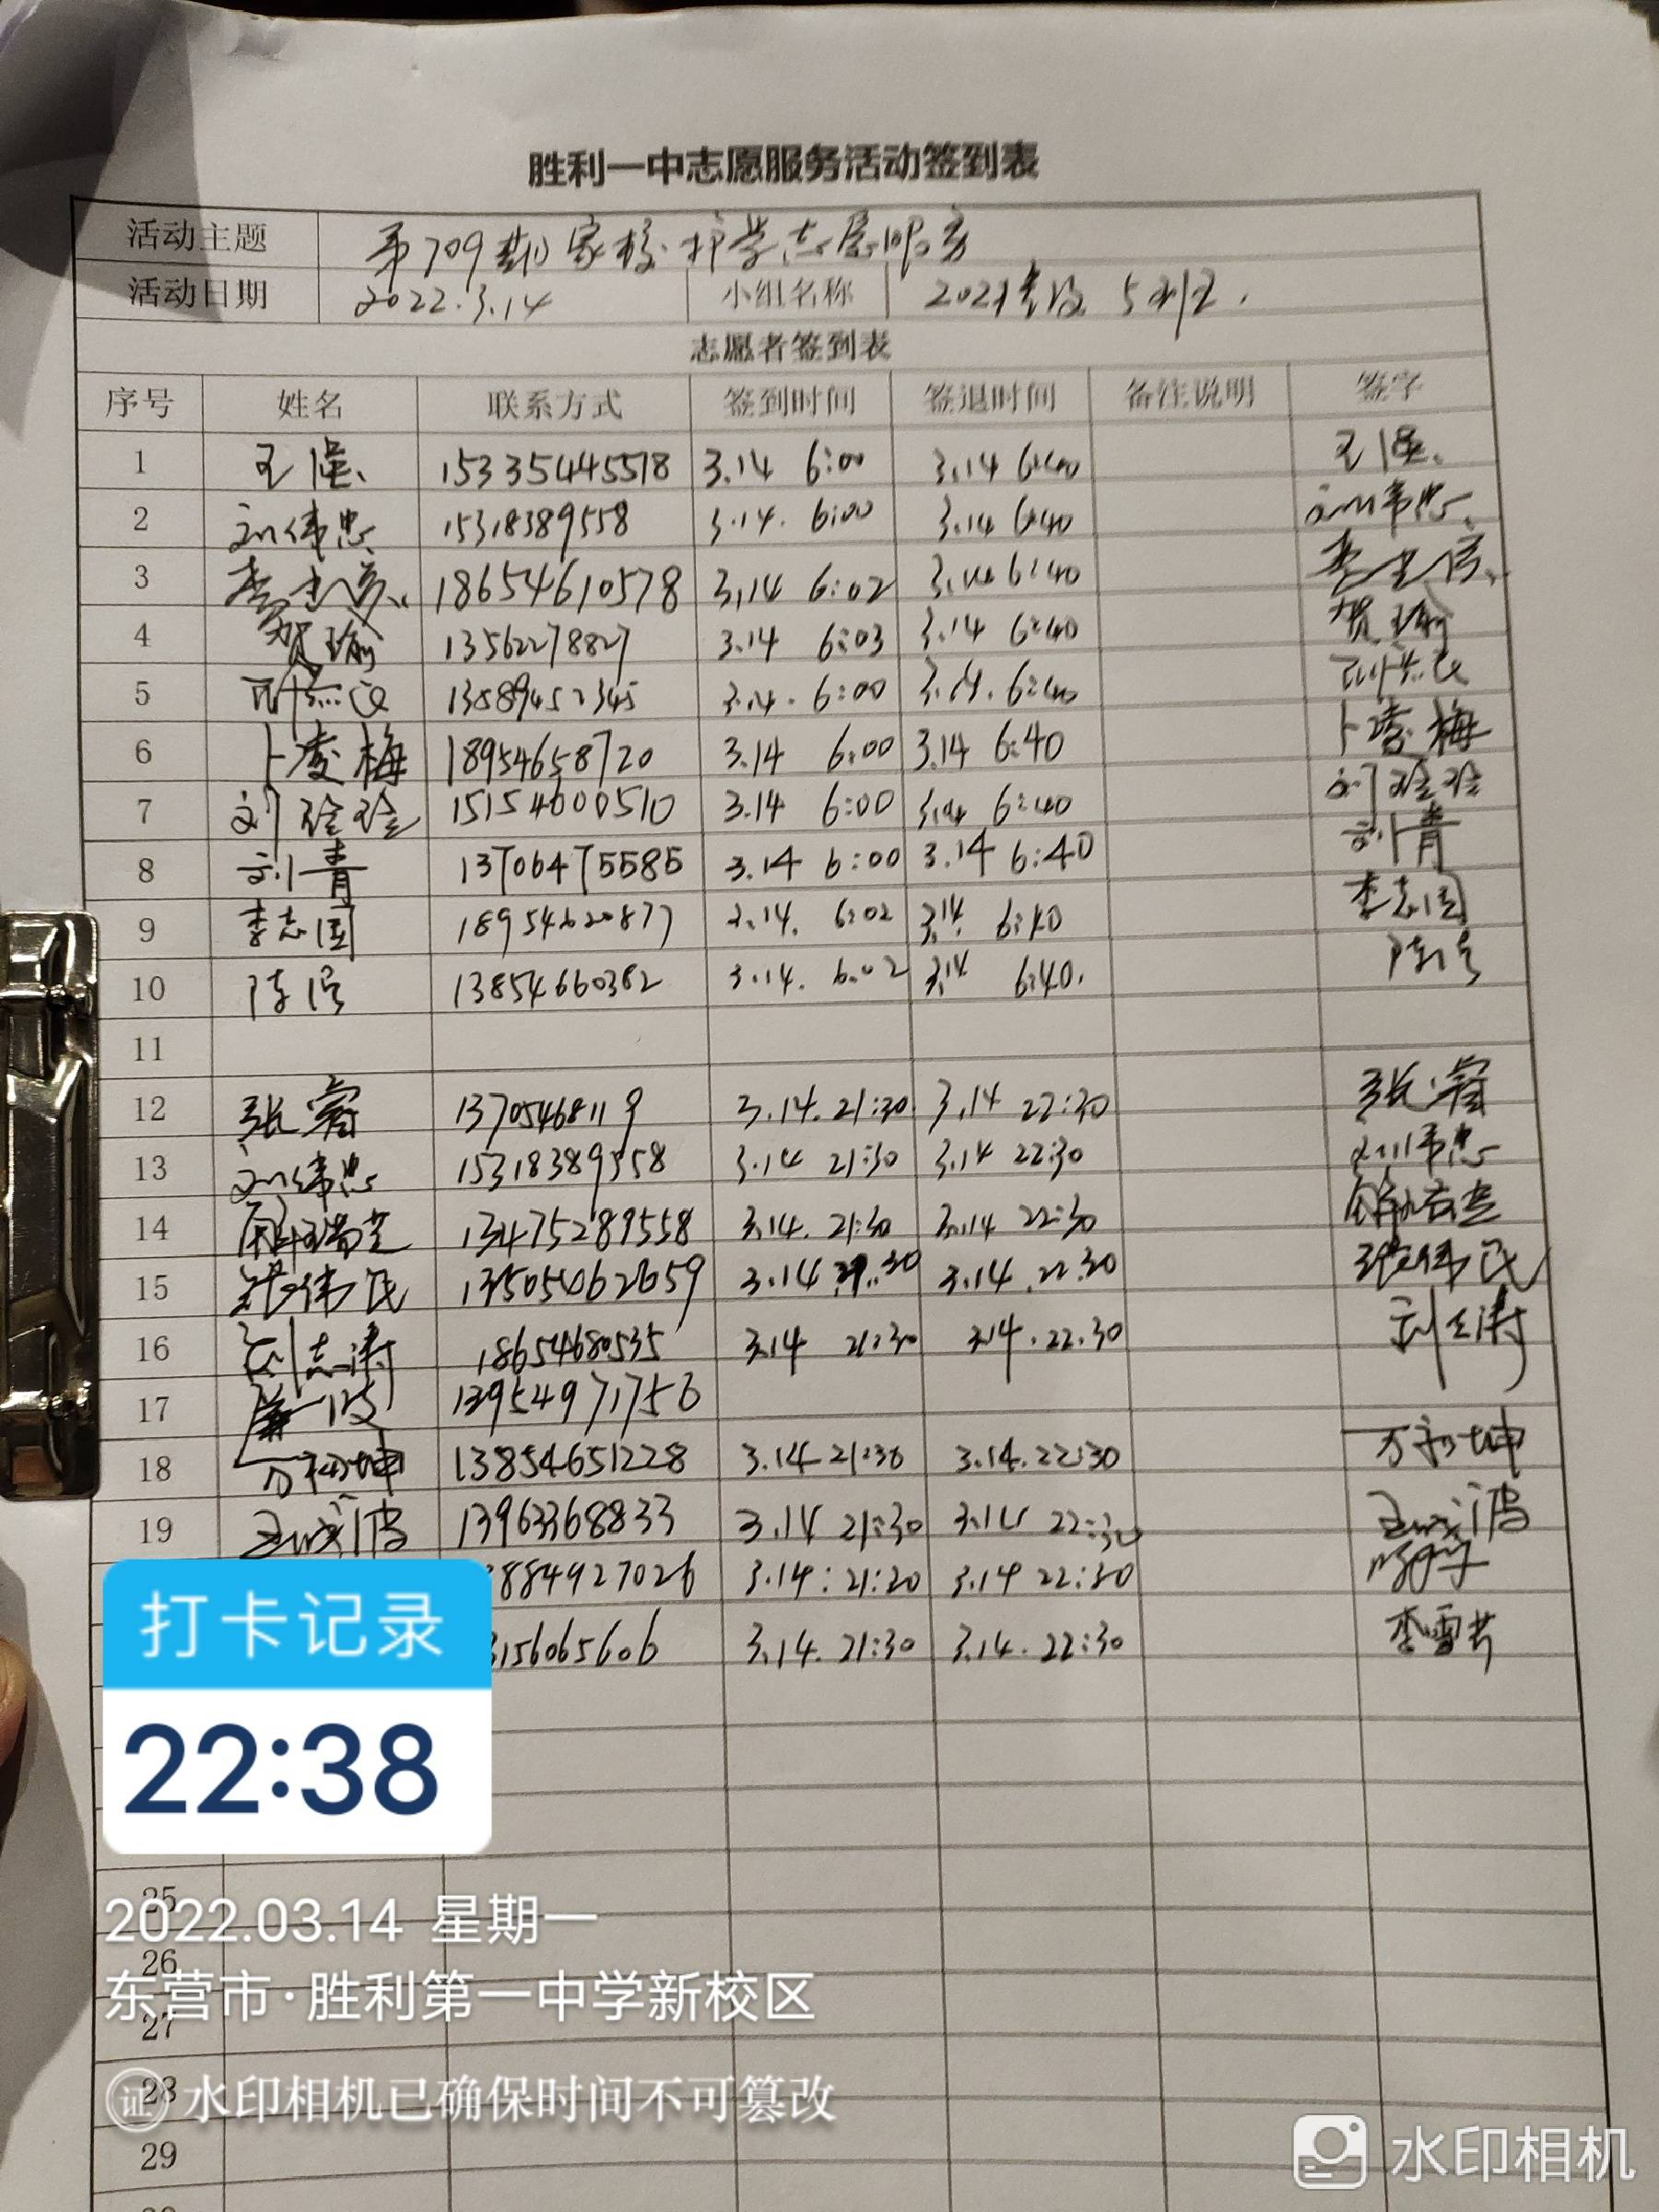 胜利一中志愿服务活动签到表
活动主题 第709期家校护学志愿服务
活动日期 2022.3.14 小组名称 2021级
志愿者签到表
序号 姓名 联系方式 签到时间 签退时间 备注说明 签字
1 王 15335445578 3.14 6:00 3.14 6:40 王
2 刘伟忠 15318389558 3.14. 6:00 3.14 6:40 刘伟忠
3 李 18654610578 3.14 6:02 3.14 6:40 李
4 贺瑜 13562278827 3.14 6:03 3.14 6:40 贺瑜
5 13589452345 3.14. 6:00 3.14. 6:40
6 卜凌梅 18954658720 3.14 6:00 3.14 6:40 卜凌梅
7 刘玲玲 15154600510 3.14 6:00 3.14 6:40 刘玲玲
8 刘青 13706475585 3.14 6:00 3.14 6:40 刘青
9 李志国 18954620877 3.14. 6:02 3.14. 6:40 李志国
10 陈 13854660382 3.14. 6:02 3.14 6:40. 陈
11
12 张 1370546811 9 3.14. 21:30 3.14 22:30 张
13 刘伟忠 15318389558 3.14 21:30 3.14 22:30 刘伟忠
14 13475289558 3.14. 21:30 3.14 22:30
15 张伟民 13505462659 3.14 21:30 3.14 .22:30 张伟民
16 刘志涛 18654680535 3.14 21:30 3.14. 22.30 刘志涛
17 13954971756
18 万和坤 13854651228 3.14 21:30 3.14. 22:30 万和坤
19 王 13963368833 3.14 21:30 3.14 22:30 王
8884927026 3.14: 21:30 3.14 22:30
3156065606 3.14. 21:30 3.14. 22:30 李雪芳
打卡记录
22:38
25
2022.03.14 星期一
26
东营市·胜利第一中学新校区
27
28
证 水印相机已确保时间不可篡改
29
水印相机